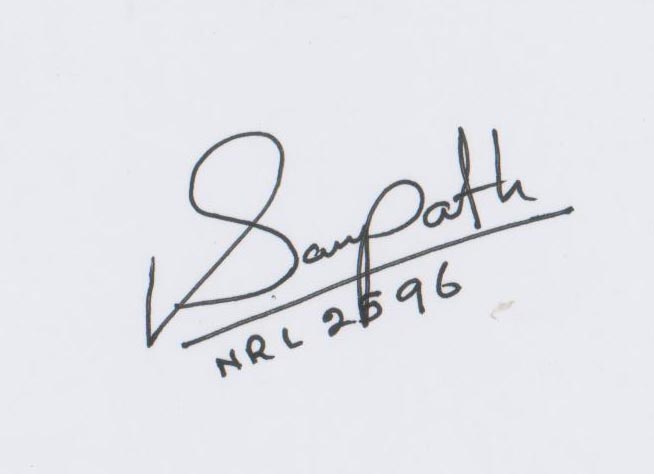 Sampath
NRL 2596